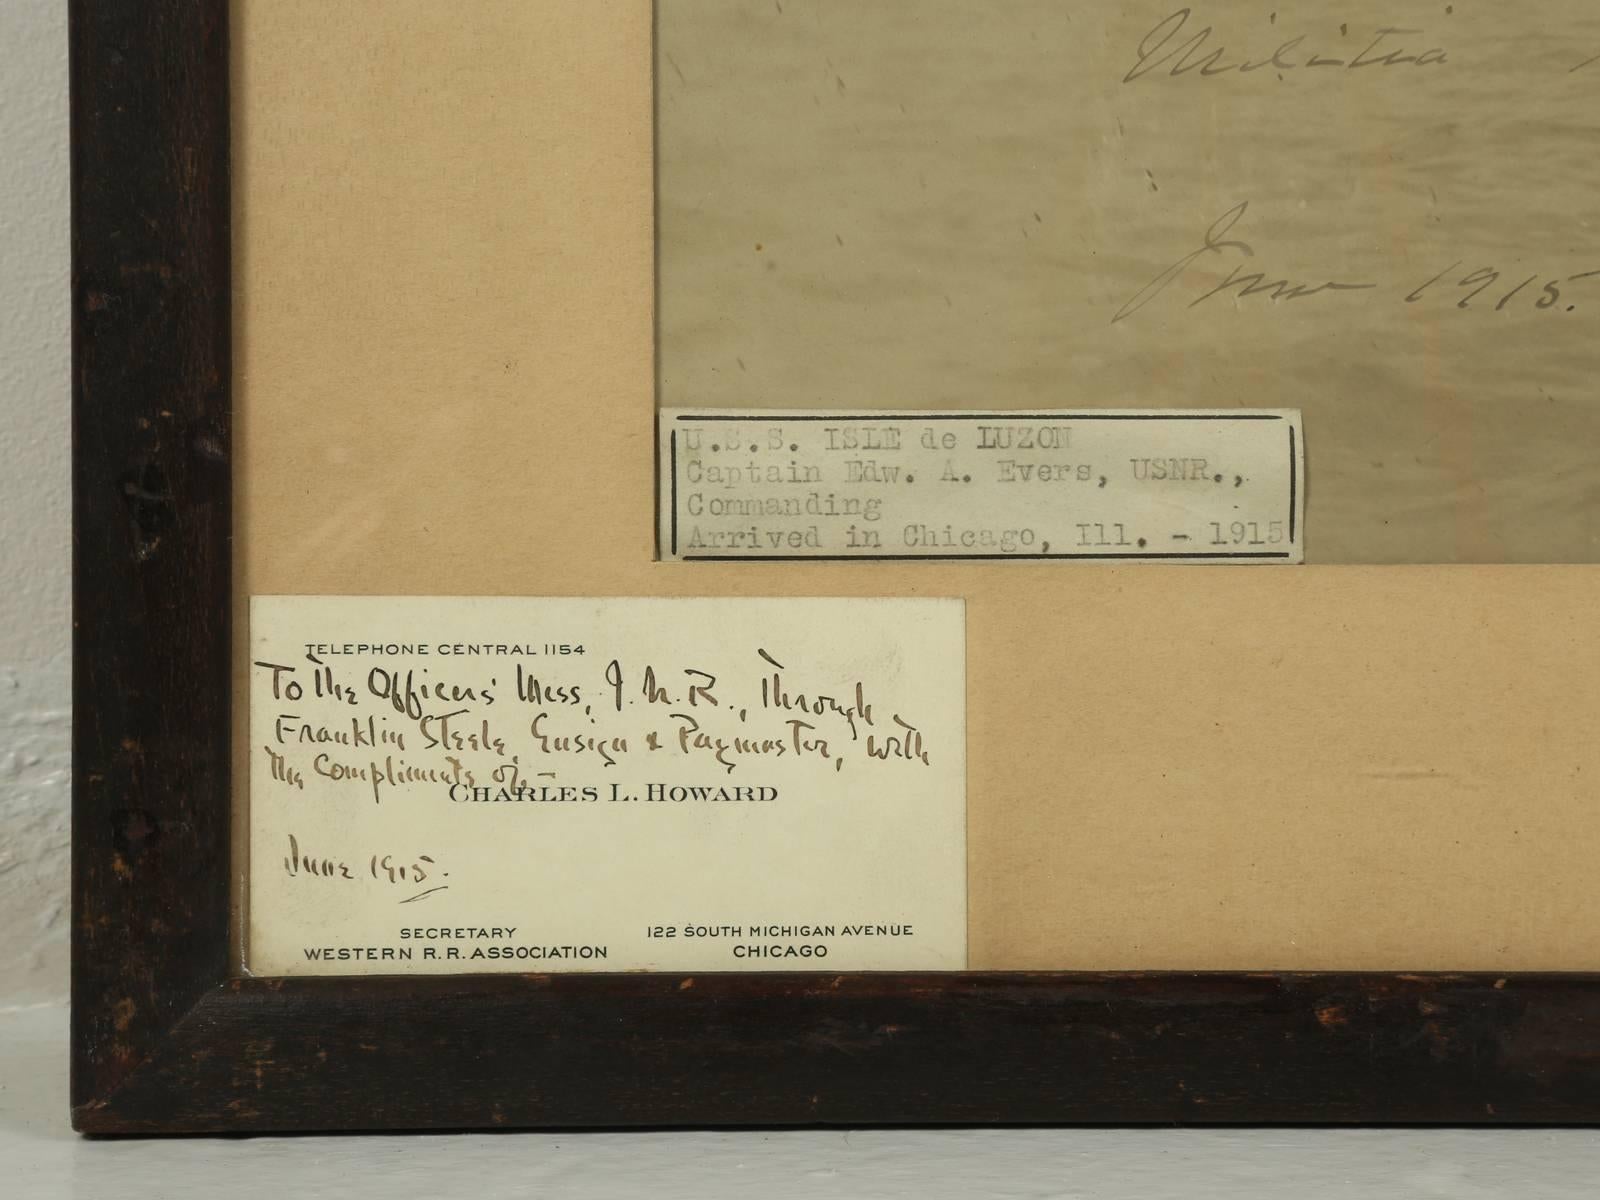 Militia
June 1915.
U.S.S. ISLE de LUZON
Captain Edw. A. Evers, USNR.,
Commanding
Arrived in Chicago, Ill. - 1915
TELEPHONE CENTRAL 1154
To The Officers' Mess, I.N.R., Through
Franklin Steele, Ensign & Paymaster, with
The Compliments of,—
CHARLES L. HOWARD
June 1915.
SECRETARY
WESTERN R. R. ASSOCIATION
122 SOUTH MICHIGAN AVENUE
CHICAGO